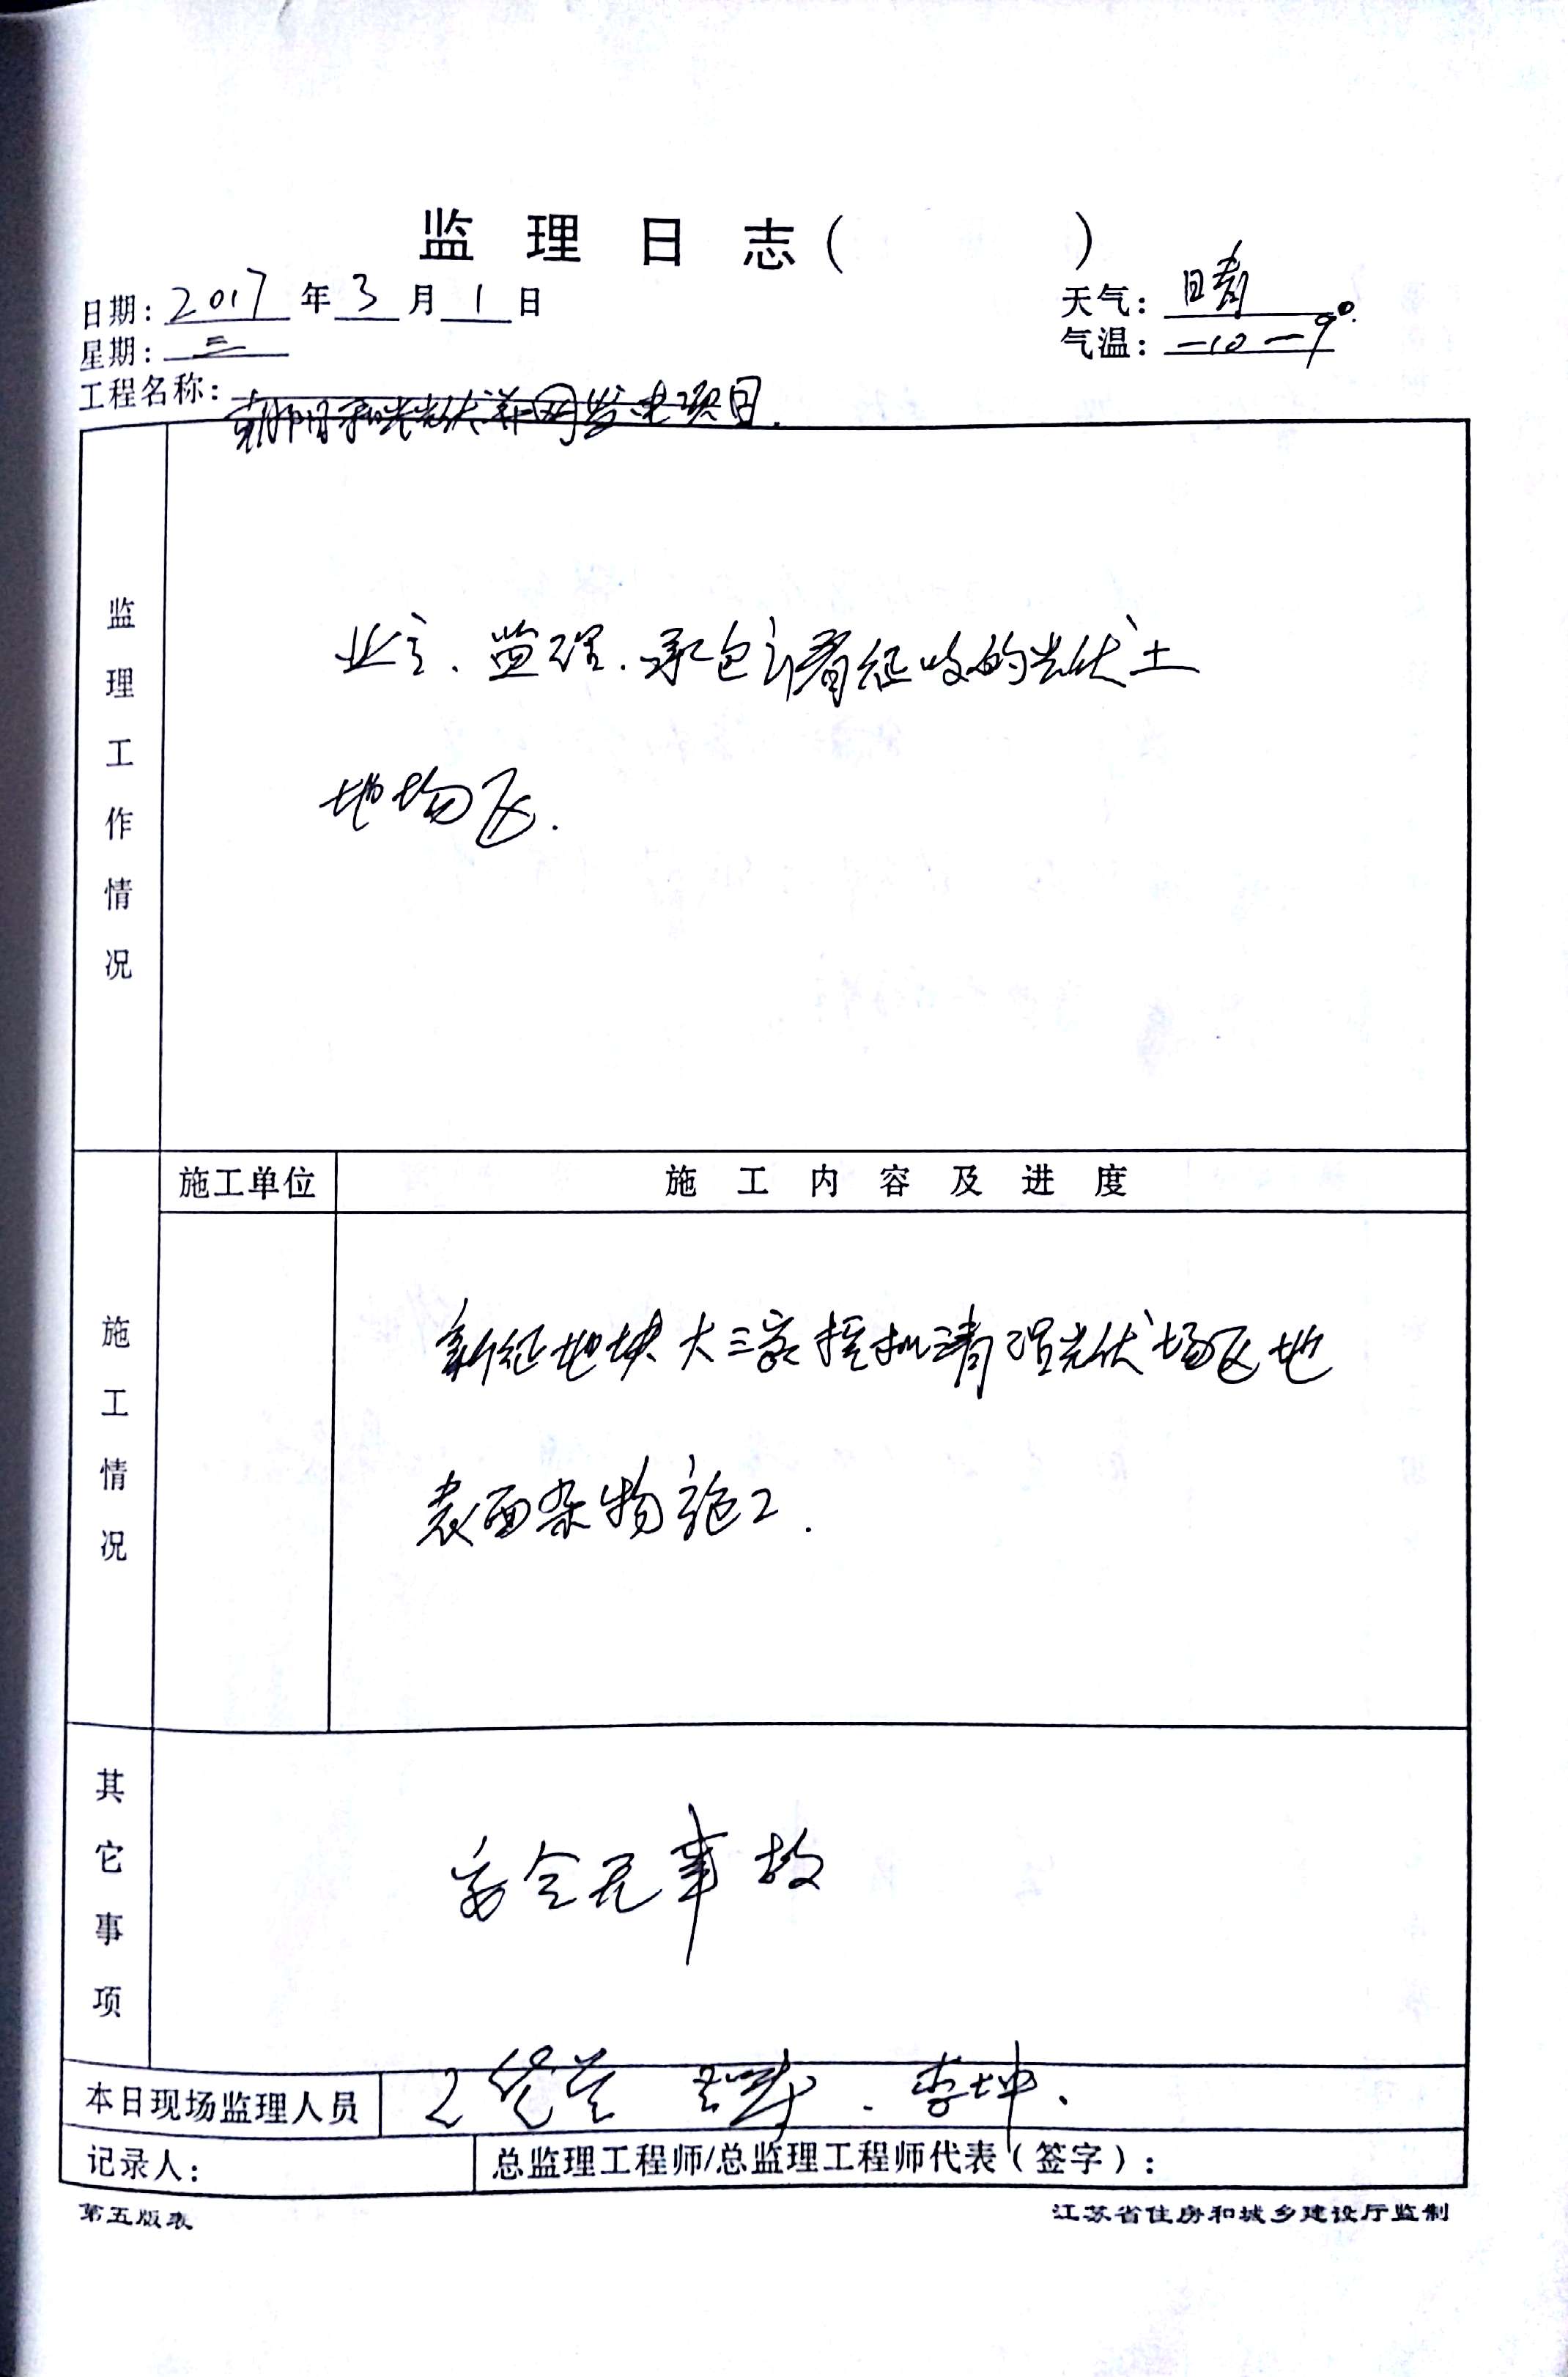 监 理 日 志 (    )
日期: 2017 年 3 月 1 日
天气: 晴
星期: 三
气温: -10-9°
工程名称: 朝阳和光光伏并网发电项目.
监理工作情况
业主、监理、承包商看征收的光伏土
地场区.
施工单位
施 工 内 容 及 进 度
施工情况
新征地块大三家挖机清理光伏场区地
表面杂物施工.
其它事项
安全无事故
本日现场监理人员 李坤.
记录人:
总监理工程师/总监理工程师代表(签字):
第五版表
江苏省住房和城乡建设厅监制